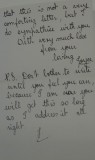 that this is not a very
comforting letter but I
do sympathise with you
With very much love
from your
loving
P.S. Don't bother to write
until you feel you can,
because I am sure you
will get this so long
as I address it all
right